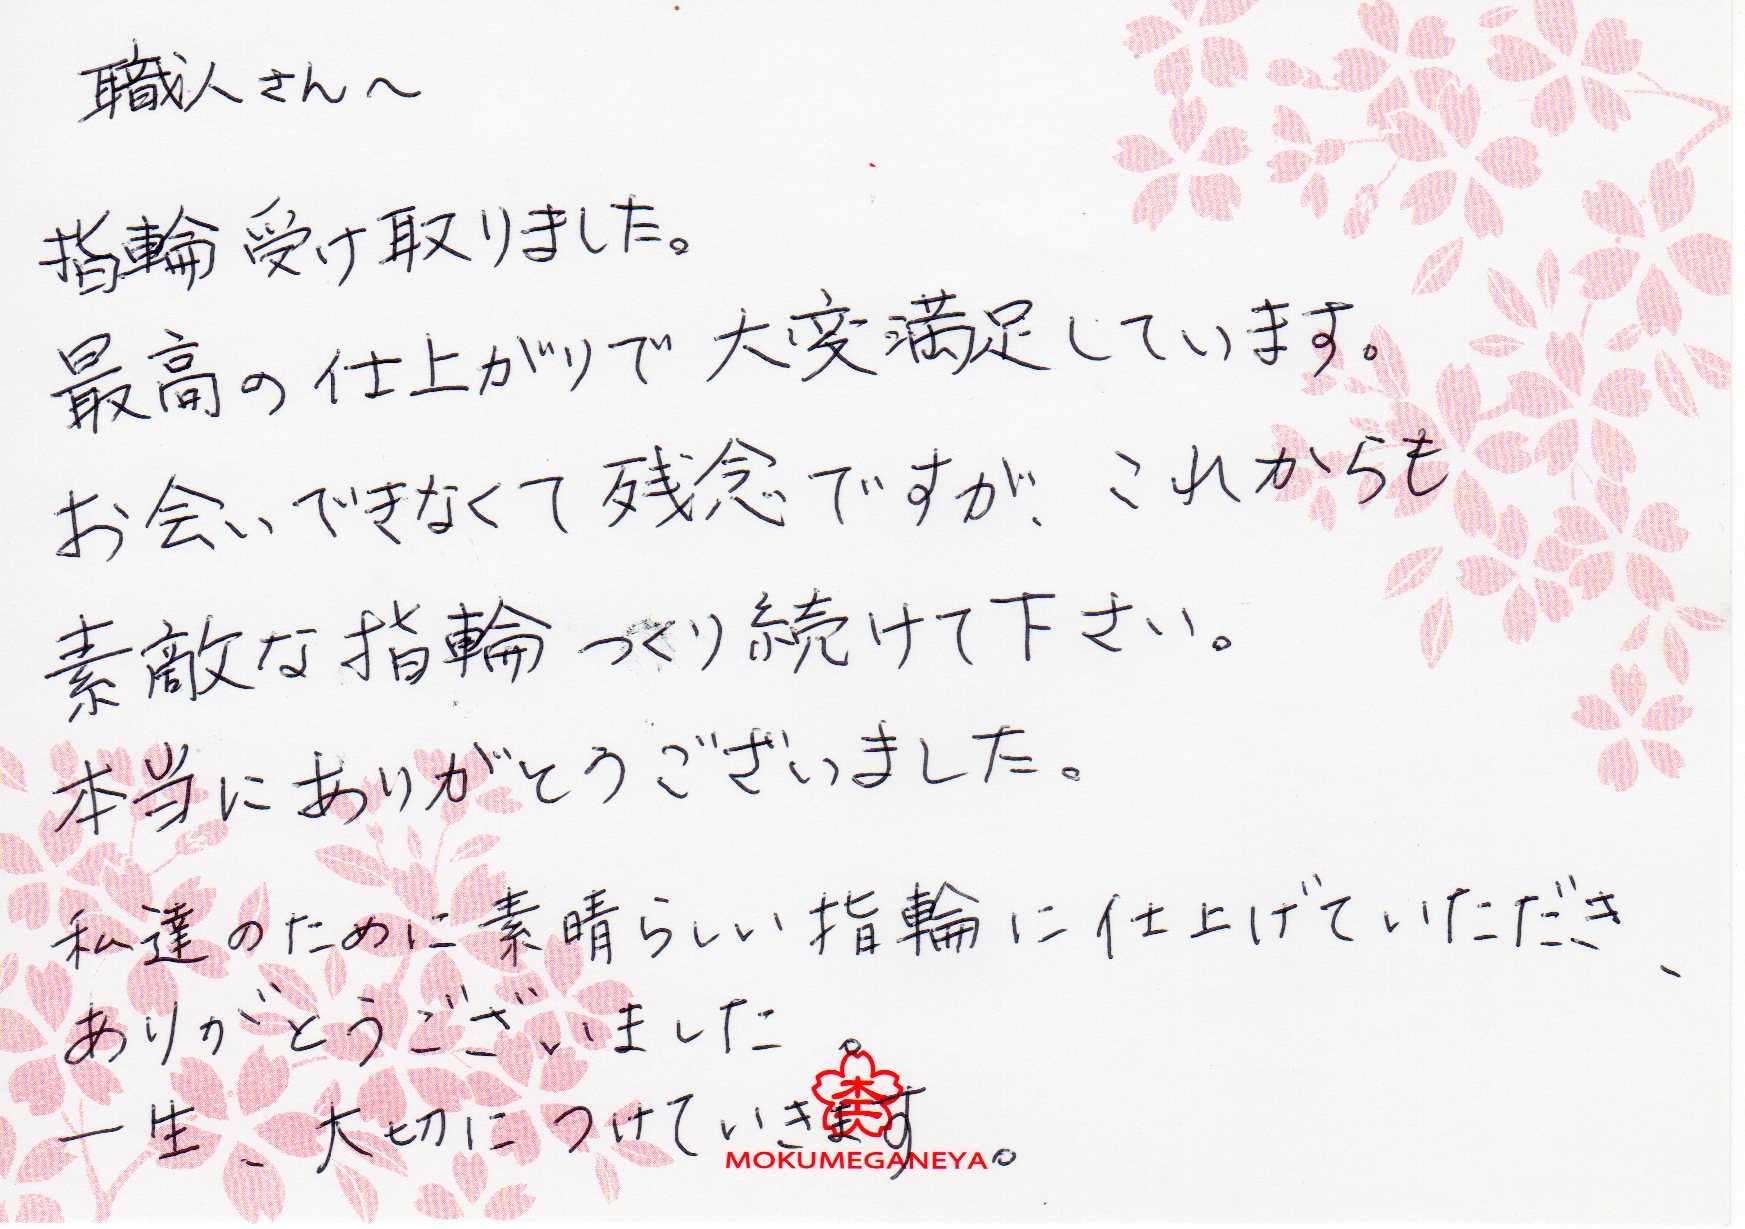 職人さんへ
指輪受け取りました。
最高の仕上がりで大変満足しています。
お会いできなくて残念ですが、これからも
素敵な指輪つくり続けて下さい。
本当にありがとうございました。
私達のために素晴らしい指輪に仕上げていただき、
ありがとうございました。
一生、大切につけていきます。
MOKUMEGANEYA